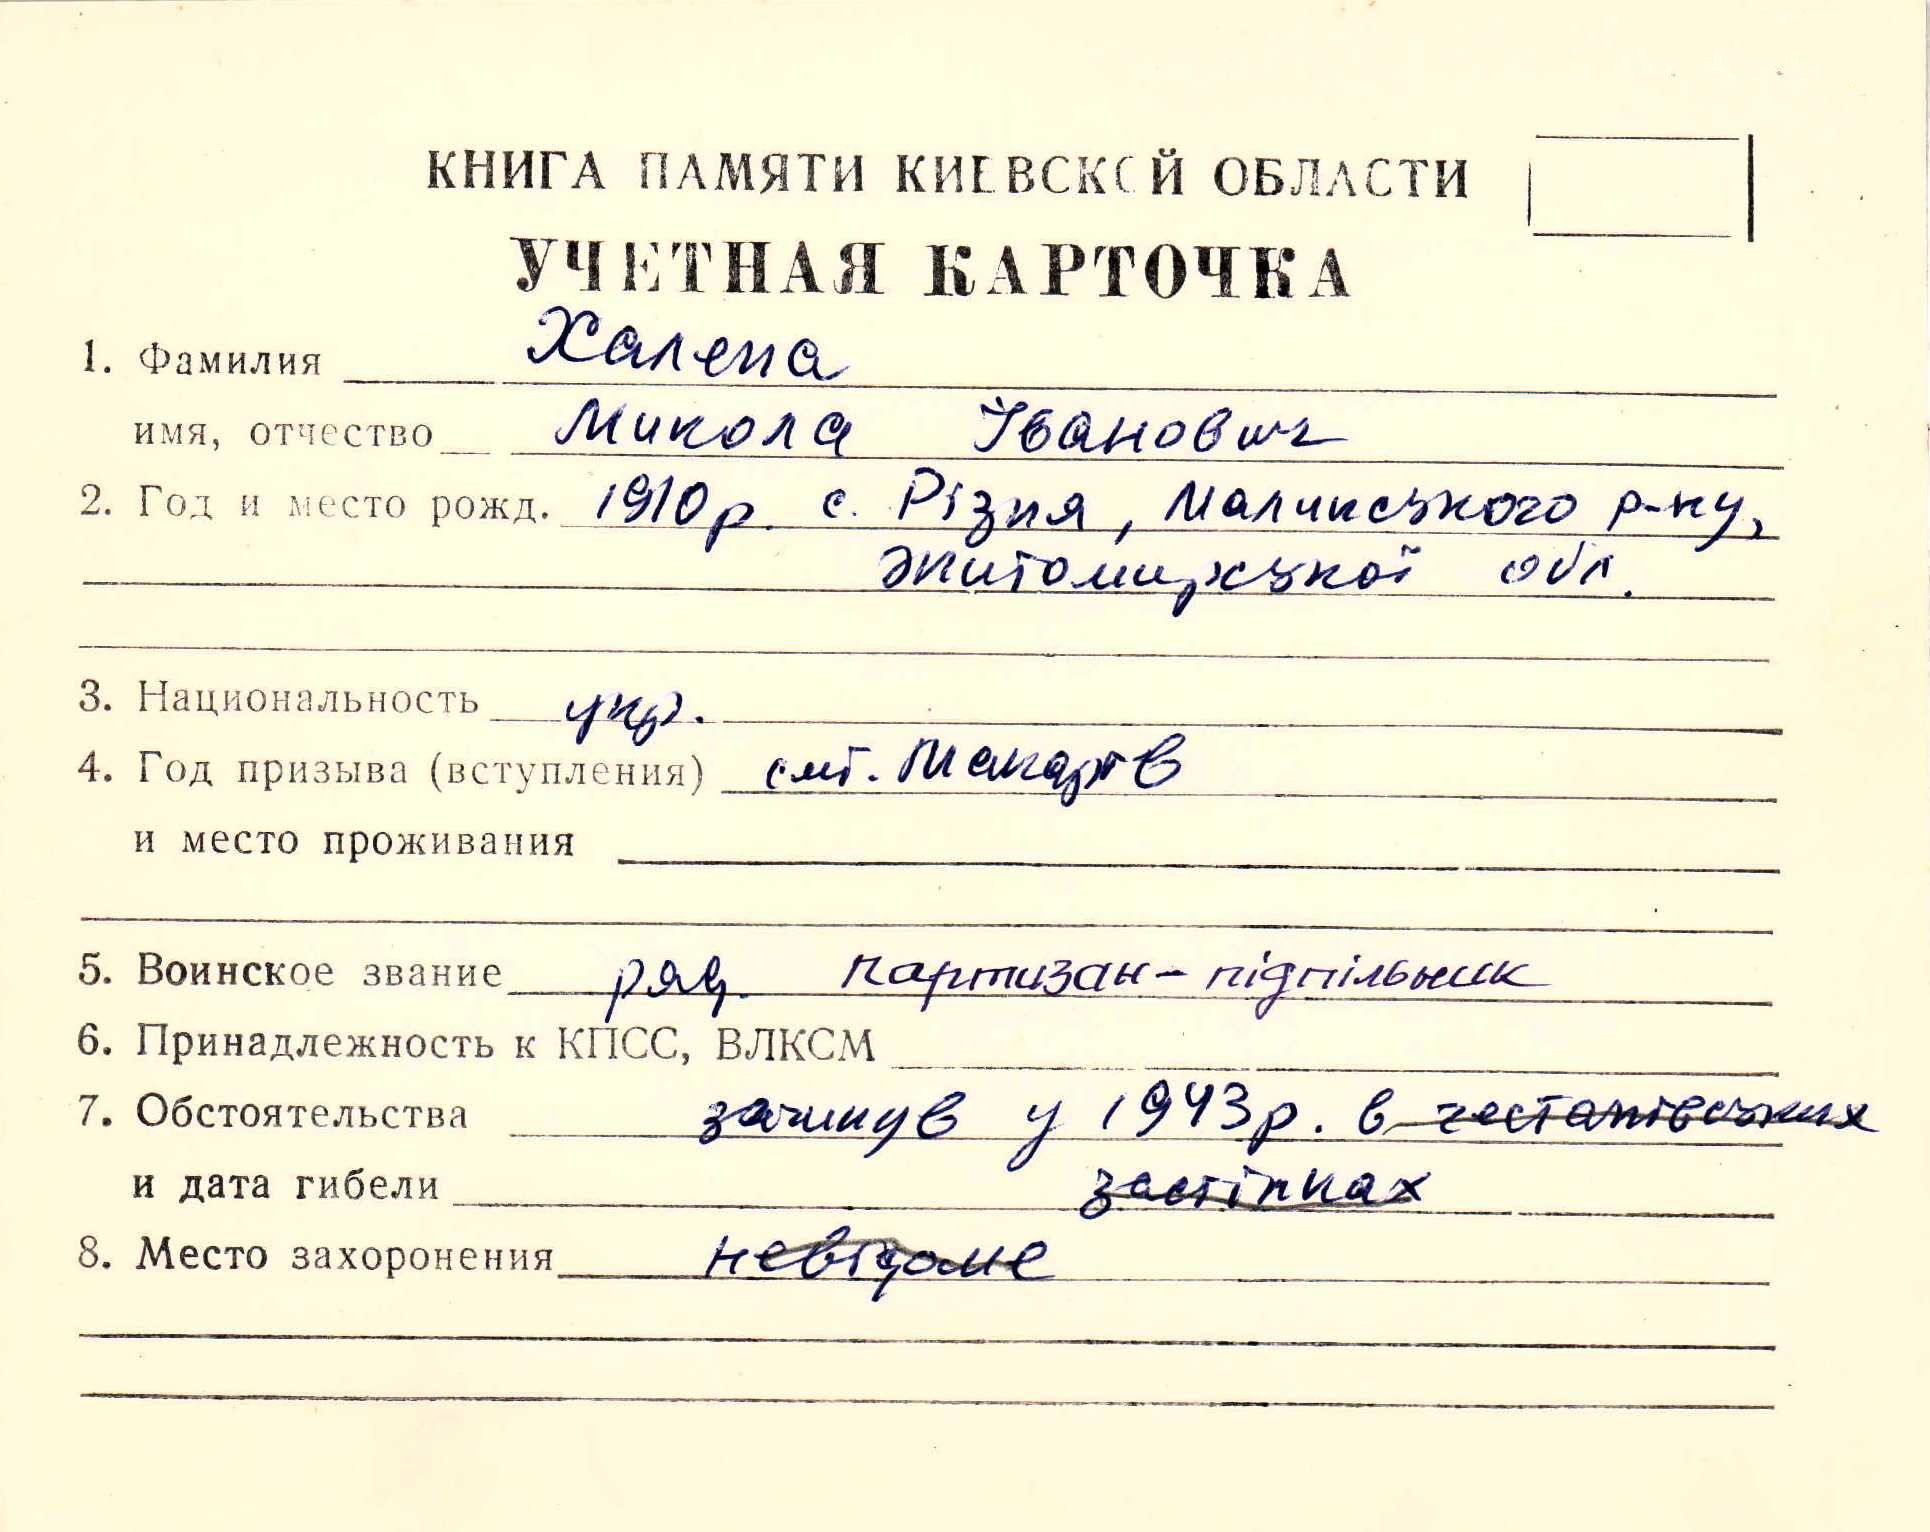 КНИГА ПАМЯТИ КИЕВСКОЙ ОБЛАСТИ
УЧЕТНАЯ КАРТОЧКА
1. Фамилия Халепа
имя, отчество Микола Іванович
2. Год и место рожд. 1910 р. с. Різня, Малинського р-ну,
Житомирської обл.
3. Национальность укр.
4. Год призыва (вступления) смт. Макарів
и место проживания
5. Воинское звание ряд. партизан-підпільник
6. Принадлежность к КПСС, ВЛКСМ
7. Обстоятельства загинув у 1943 р. в гестапівських
и дата гибели застінках
8. Место захоронения невідоме